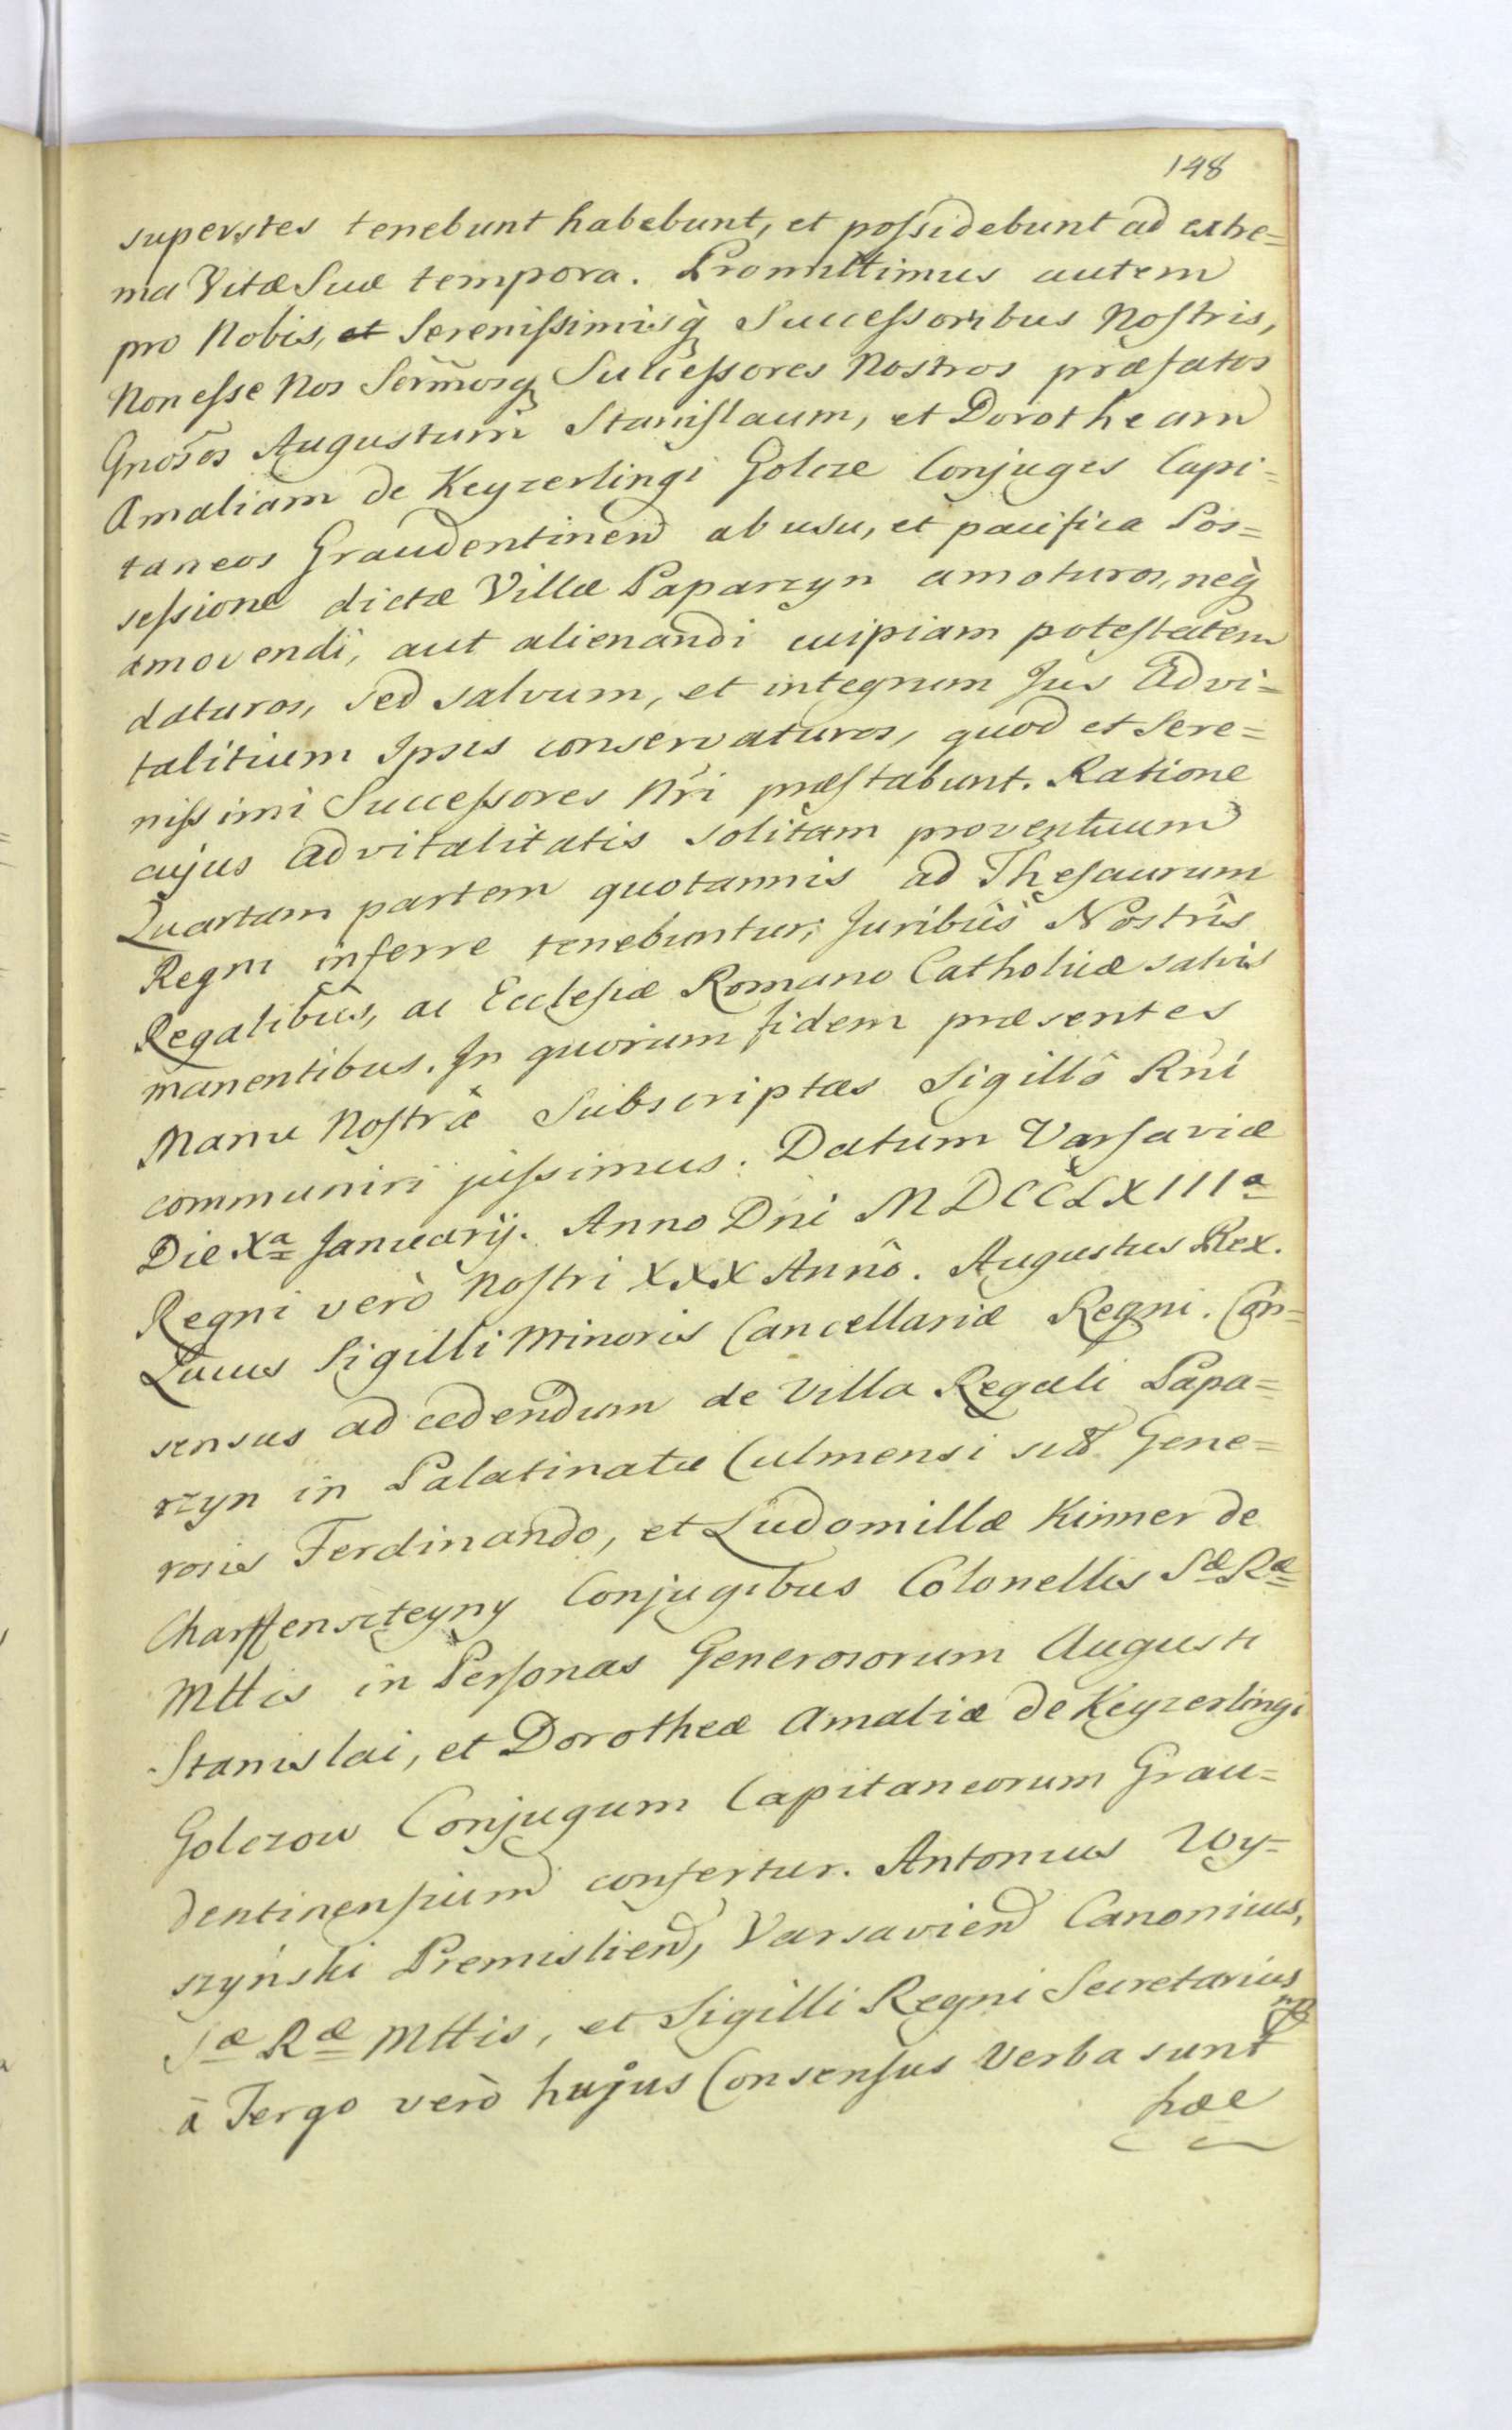 148
superstes tenebunt habebunt, et possidebunt ad extre=
ma Vitæ Suæ tempora. Promittimus autem
pro Nobis, et Serenissimisq̀ Successoribus Nostris,
Non esse Nos Serm̃osq̃ Successores Nostros præfatos
Gnosõs Augustum Stanislaum, et Dorotheam
Amaliam de Keyzerlingi Golcze Conjuges Capi=
taneos Graudentinen ab usu, et pacifica Pos=
sessione dictæ Villæ Paparzyn amoturos, neq̀
amovendi, aut alienandi cuipiam potestatem
daturos, sed salvum, et integrum Jus Advi=
talitium Ipsis conservaturos, quod et Sere=
nissimi Successores Nr̃i præstabunt. Ratione
cujus advitalitatis solitam proventuum
Quartam partem quotannis ad Thesaurum
Regni inferre tenebuntur; Juribus Nostris
Regalibus, ac Ecclesiæ Romano Catholicæ salvis
manentibus. In quorum fidem præsentes
Manu Nostrâ Subscriptas Sigillô Rñi
communiri jussimus. Datum Varsaviæ
Die Xa Januarij. Anno Dñi MDCCLXIIIa
Regni verò Nostri XXX Annô. Augustus Rex.
Locus Sigilli Minoris Cancellariæ Regni. Con=
sensus ad cedendum de Villa Regali Papa=
rzyn in Palatinatu Culmensi sitã Gene=
rosis Ferdinando, et Ludomillæ Kinner de
Charffenszteyny Conjugibus Colonellis Sæ Ræ
Mttis in Personas Generosorum Augusti
Stanislai, et Dorotheæ Amaliæ de Keyzerlingi
Golczow Conjugum Capitaneorum Grau=
dentinensium confertur. Antonius Wy=
szyński Premislien, Varsavien Canonicus,
Sæ Ræ Mttis, et Sigilli Regni Secretarius
mp
à Tergo verò hujus Consensus Verba sunt
hæc